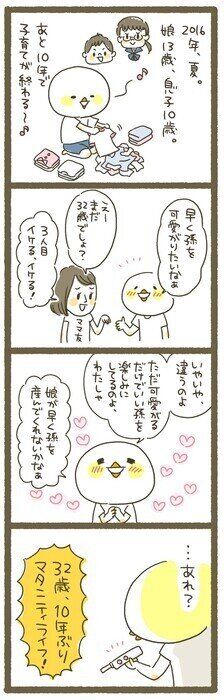 2016年、夏。
娘13歳、息子10歳。
あと10年で
子育てが終わる〜♪
早く孫を
可愛がりたいなぁ
えーまだ
32歳でしょ?
3人目
イケる、イケる!
ママ友
いやいや、
違うのよ
ただ可愛がる
だけでいい孫を
楽しみに
してるのよ、
わたしゃ
娘が早く孫を
産んでくれないかなぁ
…あれ?
32歳、10年ぶり
マタニティライフ!